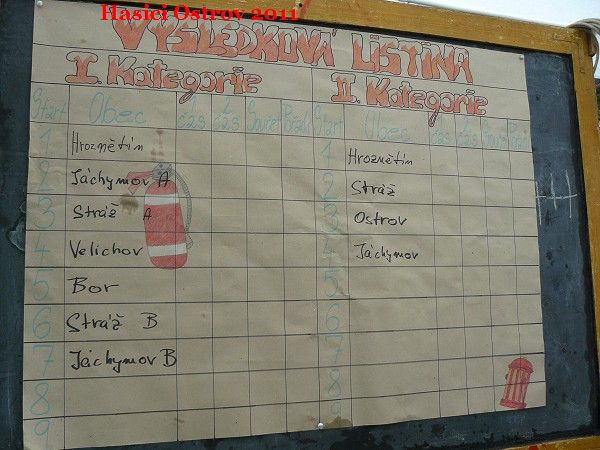 Hasici Ostrov 2011
VÝSLEDKOVÁ LISTINA
I. Kategorie
II. Kategorie
Start Obec čas čas Součet
1 Hroznětín
2 Jáchymov A
3 Stráž A
4 Velichov
5 Bor
6 Stráž B
7 Jáchymov B
8
9
Start Obec čas čas
1 Hroznětín
2 Stráž
3 Ostrov
4 Jáchymov
5
6
7
8
9